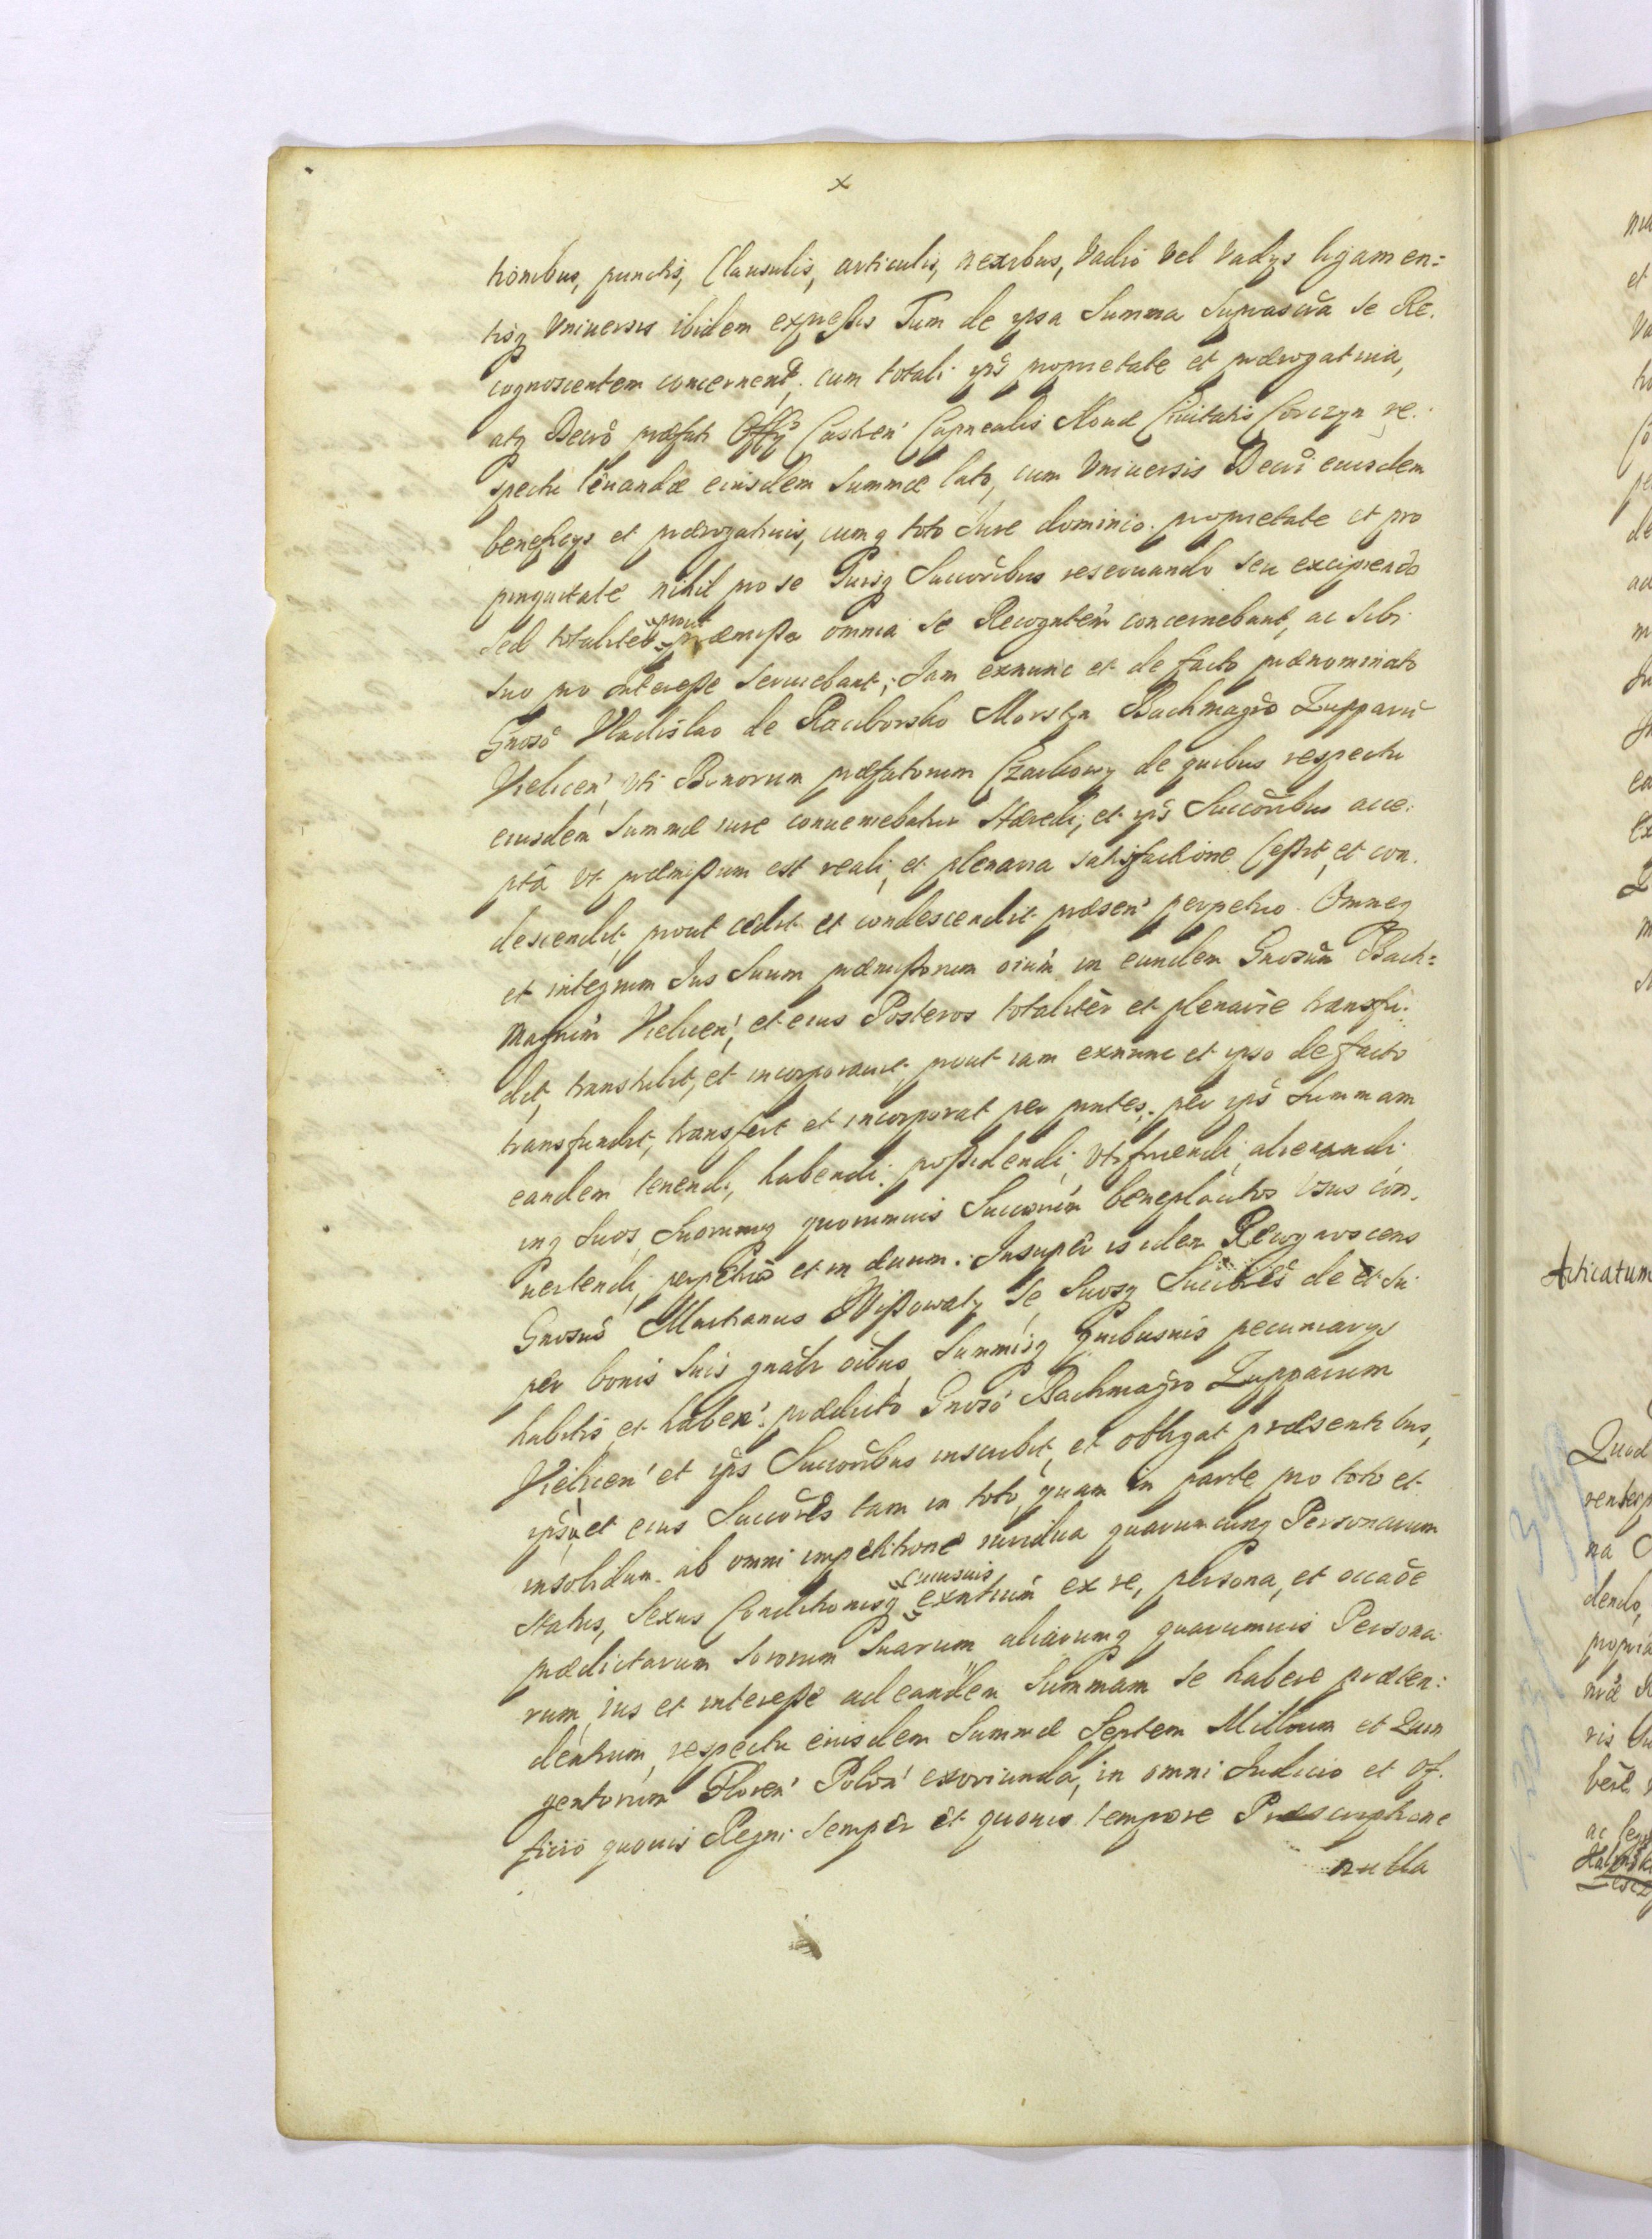 x
tionibus, punctis, Clausulis, articulis, nexibus, Vadio vel Vadys ligamen=
tisq Vniuersis ibidem expressis Tum de ipsa Summa Suprascrã se Re.
cognoscentem concernent, cum totali ips proprietate et prærogatiua,
atq Decrõ præfati Offy Castren' Capnealis Noua Ciuitatis Corczyn re.
spectu leuandæ eiusdem Summæ lato, cum Vniuersis Decri eiusdem
beneficys et prærogatiuis, cumq toto Iure dominio. proprietate et pro
pinquitate nihil pro se Suisq Succoribus reseruando seu excipiendo
sed totalitèr prout præmissa omnia se Recognten concernebant, ac sibi
suo pro interesse seruiebant, Iam exnunc et de facto prænominato
Gnoso Vladislao de Raciborsko Morstyn Bachmagro Zupparu
Vielicen' vti Bonorum præfatorum Czarkowy de quibus respectu
eiusdem Summæ iure conueniebatur Hæredi, et ips Succoribus acce.
ptâ vt præmissum est reali, et plenaria satisfactione Cessit, et con.
descendit, prout cedit et condescendit præsen' perpetuo. Omneq
et integrum Ius Suum præmissorum oium in eundem Gnosum Bach=
magrum Vielicen', et eius Posteros totalitèr et plenarie transfu.
dit, transtulit, et incorporauit prout iam exnunc et ipso de facto
transfundit, transfert et incorporat per pntes, per ips Summam
eandem tenendi, habendi, possidendi, vtifruendi, alienandi
inq Suos Suorumq quorumuis Succorum beneplacitos vsus con.
uertendi, perpetuò et in æuum. Insupèr is idem Recognoscens
Gnosus Martianus Wissowaty Se, Suosq Succores de et su
per bonis Suis gnãlr oibus, Summisq quibusuis pecuniarys
habitis et haben'. prædicto Gnoso Bachmagro Zupparum
Vielicen' et ips Succoribus inscribit, et obligat præsentibus,
ipsu et eius Succores tam in toto, quam in parte pro toto et
insolidum ab omni impetitione iuridica quarumcunq Personarum
status, Sexus Conditionisq cuiusuis exntium ex re, persona, et occaõe
prædictarum sororum Suarum aliarumq quarumuis Persona
rum, ius et interesse ad eandem Summam se habere præten:
dentium, respectu eiusdem Summæ Septem Millium et Quin
gentorum Floren' Polon' exoriunda, in omni Iudicio et Of.
ficio quouis Regni. Sempèr et quouis tempore Præscriptione
nulla
Articatum
Quod
dendo,
propria